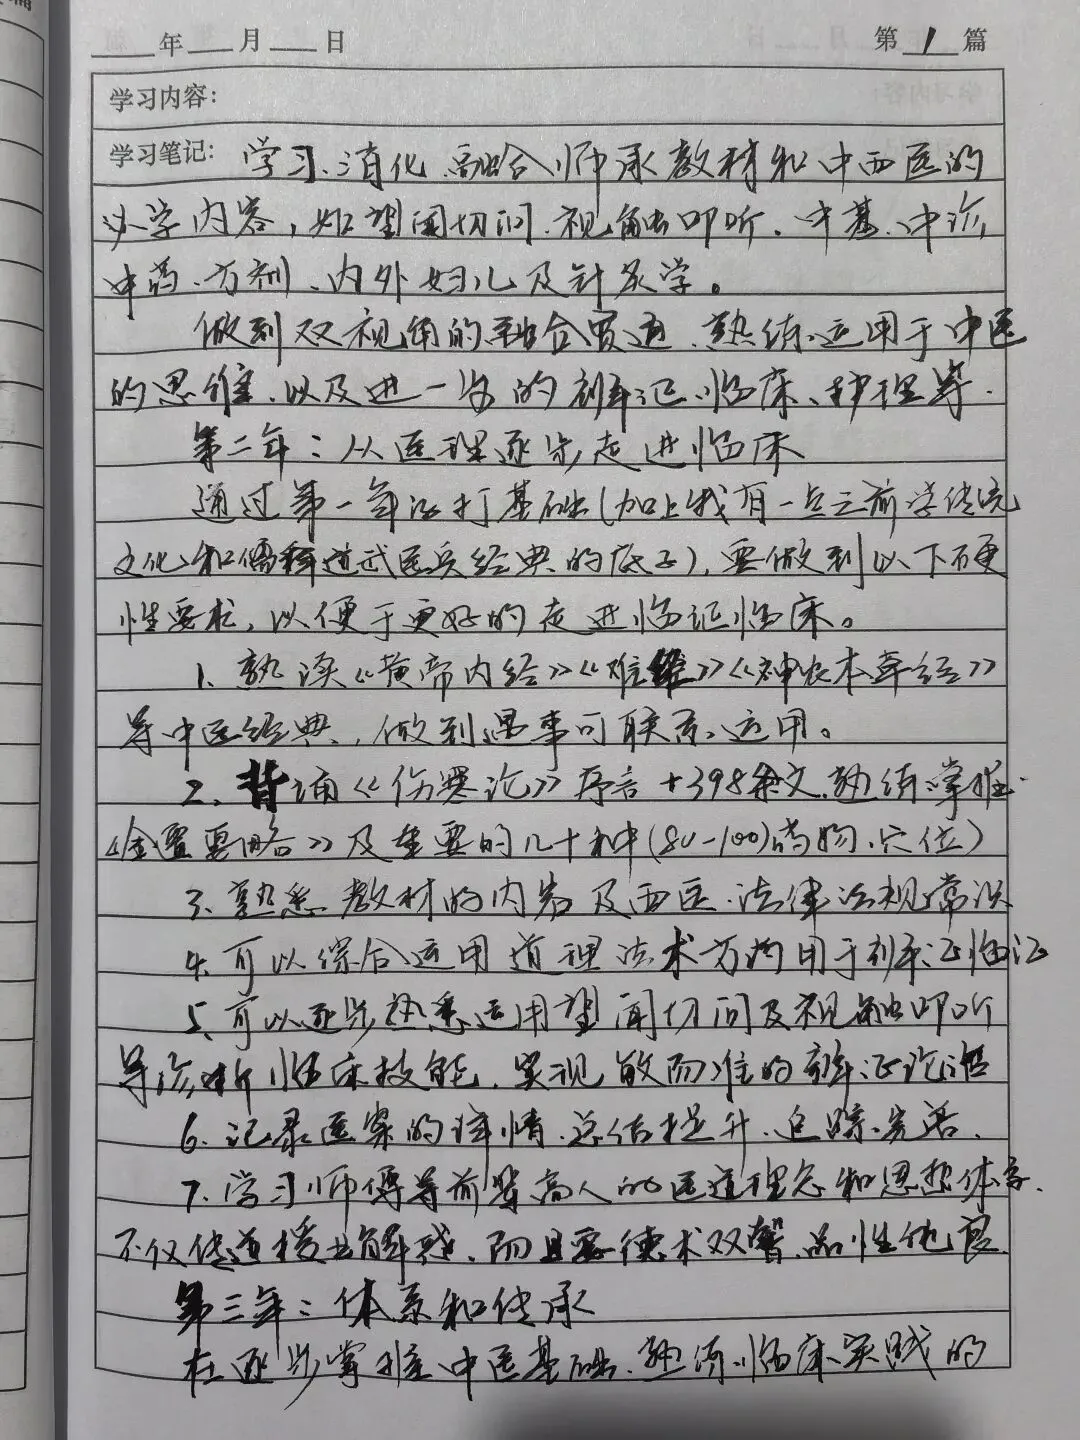 ___年___月___日 第1篇
学习内容:
学习笔记: 学习、消化、融合师承教材和中西医的
必学内容，如望闻切问、视触叩听、中基、中诊
中药、方剂、内外妇儿及针灸学。
做到双视角的融合贯通、熟练、运用于中医
的思维、以及进一步的辩证、临床、护理等.
第二年：从医理逐步走进临床
通过第一年的打基础(加上我有一点之前学传统
文化和儒释道武医兵经典的底子), 要做到以下硬
性要求, 以便于更好的走进临证临床。
1、熟读《黄帝内经》《难经》《神农本草经》
等中医经典, 做到遇事可联系、运用。
2、背诵《伤寒论》序言+398条文、熟练掌握
《金匮要略》及重要的几十种(80-100)药物、穴位)
3、熟悉教材的内容及西医、法律法规常识
4、可以综合运用道理法术方药用于辩证临证
5、可以逐步熟悉运用望闻切问及视触叩听
等诊断临床技能、实现敏而准的辩证论治
6、记录医案的详情、总结提升、追踪、
7、学习师傅等前辈高人的医道理念和思想体系、
不仅传道授业解惑、而且要德术双馨、品性优良
第三年：体系和传承
在逐步掌握中医基础、熟练临床实践的